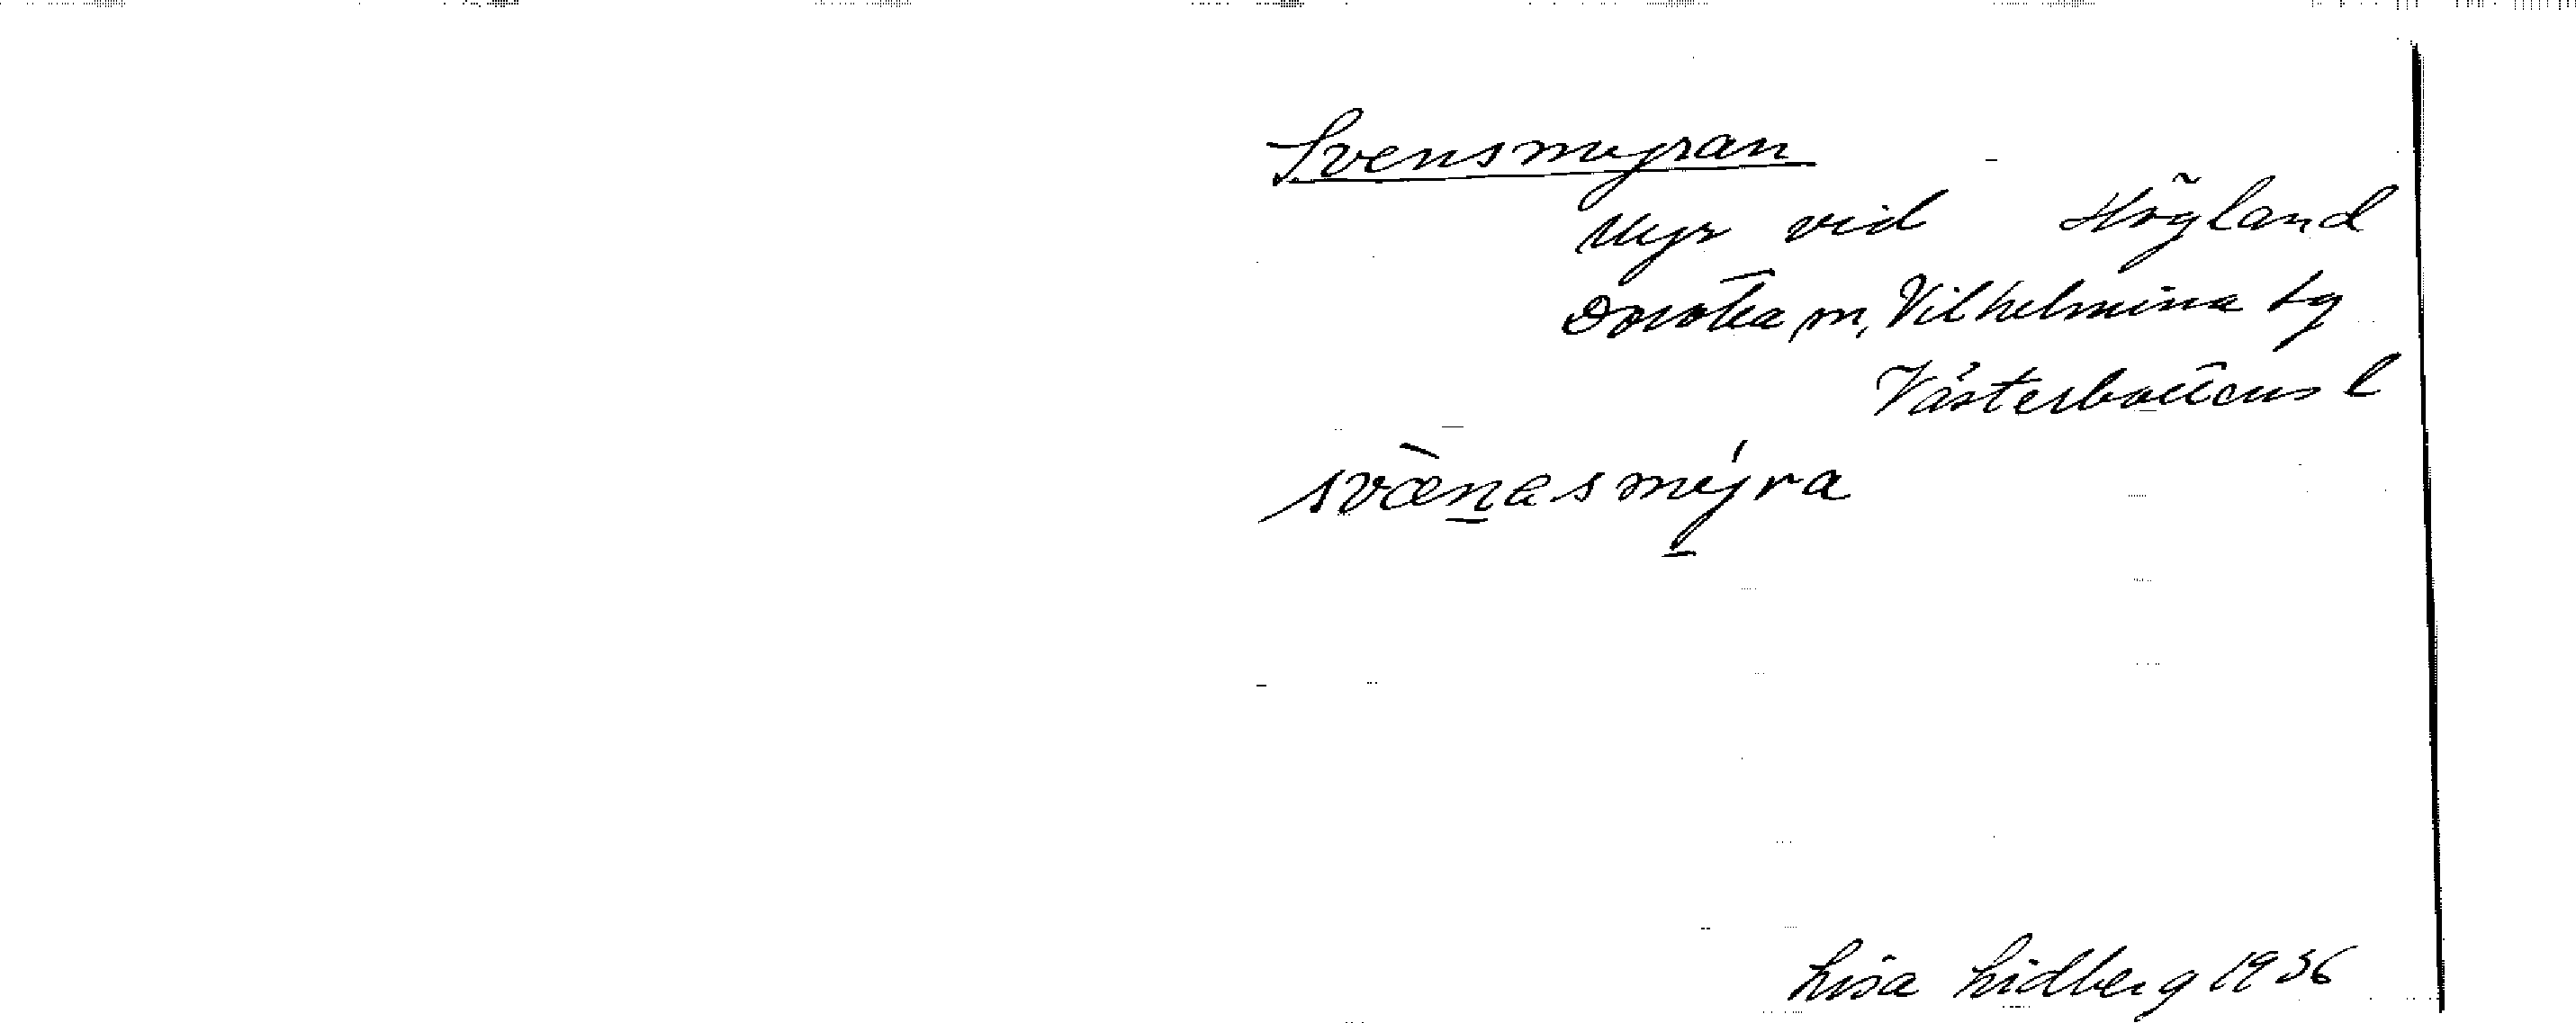 Svensmyran
Myr vid Högland
Dorotea sn, Vilhelmina tg
Västerbottens l
svæ̀nasmýra
Lisa Lidberg 1936